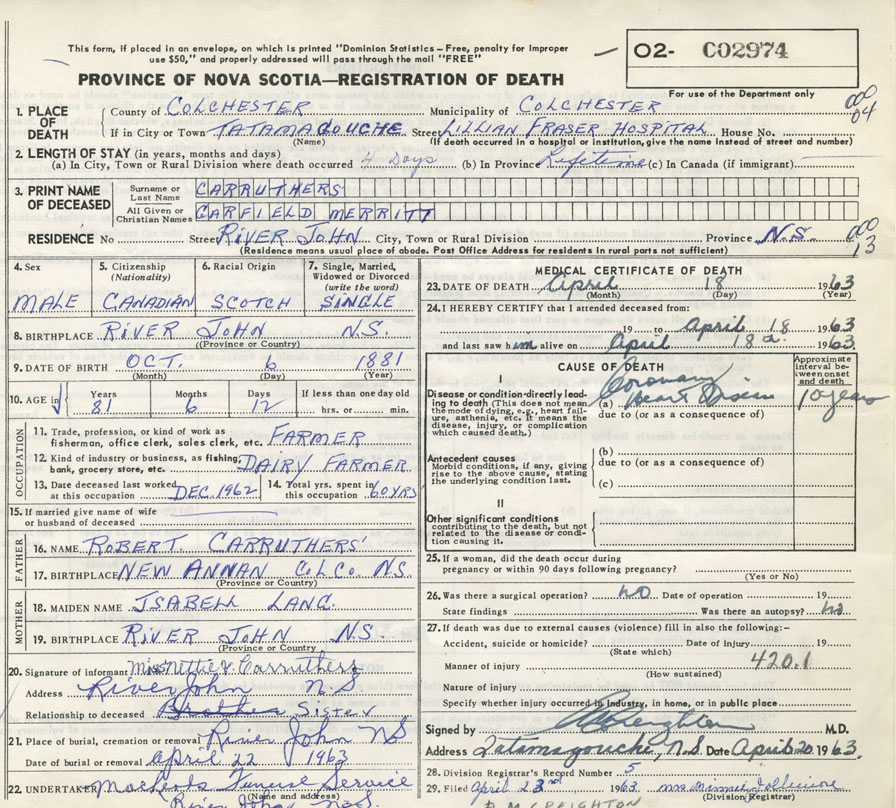 This form, if placed in an envelope, on which is printed "Dominion Statistics - Free, penalty for improper
use $50," and properly addressed will pass through the mail "FREE"
O2- C02974
For use of the Department only
PROVINCE OF NOVA SCOTIA—REGISTRATION OF DEATH
1. PLACE OF DEATH County of COLCHESTER Municipality of COLCHESTER
If in City or Town TATAMAGOUCHE Street LILLIAN FRASER HOSPITAL House No.
(Name) (If death occurred in a hospital or institution, give the name instead of street and number)
000
04
2. LENGTH OF STAY (in years, months and days)
(a) In City, Town or Rural Division where death occurred 4 Days (b) In Province Lifetime (c) In Canada (if immigrant)
3. PRINT NAME OF DECEASED Surname or Last Name CARRUTHERS
All Given or Christian Names GARFIELD MERRITT
RESIDENCE No Street RIVER JOHN City, Town or Rural Division Province N.S.
(Residence means usual place of abode. Post Office Address for residents in rural parts not sufficient)
000
13
4. Sex MALE
5. Citizenship (Nationality) CANADIAN
6. Racial Origin SCOTCH
7. Single, Married, Widowed or Divorced (write the word) SINGLE
8. BIRTHPLACE RIVER JOHN N.S.
(Province or Country)
9. DATE OF BIRTH OCT. 6 1881
(Month) (Day) (Year)
10. AGE in Years 81 Months 6 Days 12 If less than one day old hrs. or min.
OCCUPATION
11. Trade, profession, or kind of work as fisherman, office clerk, sales clerk, etc. FARMER
12. Kind of industry or business, as fishing, bank, grocery store, etc. DAIRY FARMER
13. Date deceased last worked at this occupation DEC. 1962
14. Total yrs. spent in this occupation 60 YRS
15. If married give name of wife or husband of deceased
FATHER
16. NAME ROBERT CARRUTHERS
17. BIRTHPLACE NEW ANNAN COL. CO. N.S.
(Province or Country)
MOTHER
18. MAIDEN NAME ISABELL LANG.
19. BIRTHPLACE RIVER JOHN N.S.
(Province or Country)
20. Signature of informant Miss Nettie V. Carruthers
Address River John N.S
Relationship to deceased Brother Sister
21. Place of burial, cremation or removal River John NS
Date of burial or removal April 22 1963
22. UNDERTAKER Funeral Service
(Name and address)
River John N.S.
MEDICAL CERTIFICATE OF DEATH
23. DATE OF DEATH April 18 1963
(Month) (Day) (Year)
24. I HEREBY CERTIFY that I attended deceased from:
19 to April 18 1963
and last saw him alive on April 18 1963.
CAUSE OF DEATH
Approximate interval between onset and death
I
Disease or condition directly leading to death (This does not mean the mode of dying, e.g., heart failure, asthenia, etc. It means the disease, injury, or complication which caused death.)
(a) Coronary Heart Disease 10 years
due to (or as a consequence of)
Antecedent causes
Morbid conditions, if any, giving rise to the above cause, stating the underlying condition last.
(b)
due to (or as a consequence of)
(c)
II
Other significant conditions
contributing to the death, but not related to the disease or condition causing it.
25. If a woman, did the death occur during
pregnancy or within 90 days following pregnancy?
(Yes or No)
26. Was there a surgical operation? no Date of operation 19
State findings Was there an autopsy? no
27. If death was due to external causes (violence) fill in also the following:-
Accident, suicide or homicide? Date of injury 19
(State which)
Manner of injury 420.1
(How sustained)
Nature of injury
Specify whether injury occurred in industry, in home, or in public place
Signed by Creighton M.D.
Address Tatamagouche, N.S. Date April 20 1963.
28. Division Registrar's Record Number 5
29. Filed April 23rd 1963 Mrs Minnie
(Division Registrar)
CREIGHTON